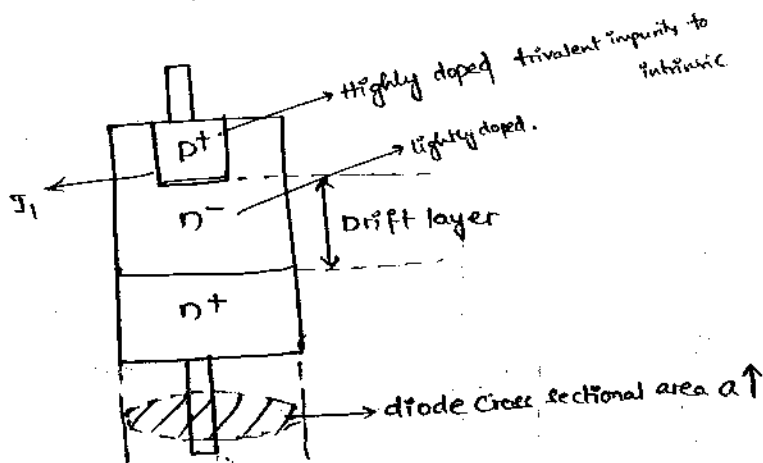 Highly doped trivalent impurity to
intrinsic
P+
lightly doped.
J1
n−
Drift layer
n+
diode Cross sectional area a↑